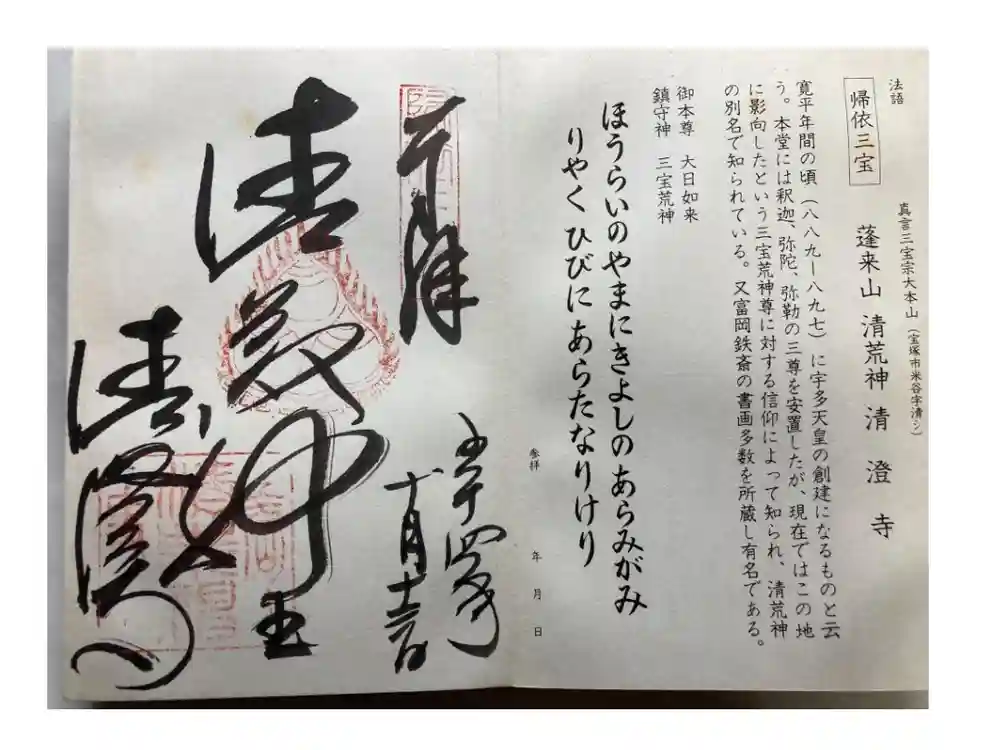 法語
帰依三宝
真言三宝宗大本山(宝塚市米谷字清シ)
蓬来山 清荒神 清澄寺
寛平年間の頃(八八九ー八九七)に宇多天皇の創建になるものと云
う。本堂には釈迦、弥陀、弥勒の三尊を安置したが、現在ではこの地
に影向したという三宝荒神尊に対する信仰によって知られ、清荒神
の別名で知られている。又富岡鉄斎の書画多数を所蔵し有名である。
御本尊 大日如来
鎮守神 三宝荒神
ほうらいのやまにきよしのあらみがみ
りやくひびにあらたなりけり
参拝 年 月 日
奉拝
五十四年
十月十三日
清荒神王
清澄寺